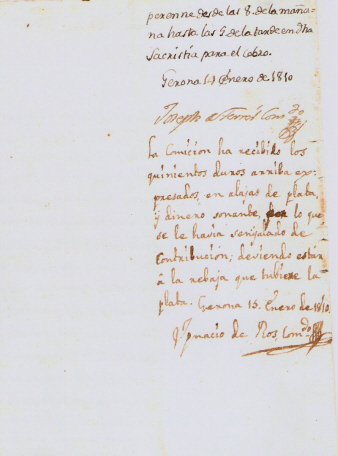 perenne desde las 8. de la maña-
na hasta las 5 de la tarde en dha
Sacristía para el cobro.
Gerona 14 Enero de 1810
Joseph de Ferrér Comdo
La Comicion ha recibido los
quinientos duros arriba ex-
presados, en alajas de plata,
y dinero sonante, por lo que
se le havia señalado de
Contribución; deviendo estár
á la rebaja que tubiese la
plata. Gerona 15. Enero de 1810.
Ignacio de Ros, Comdo